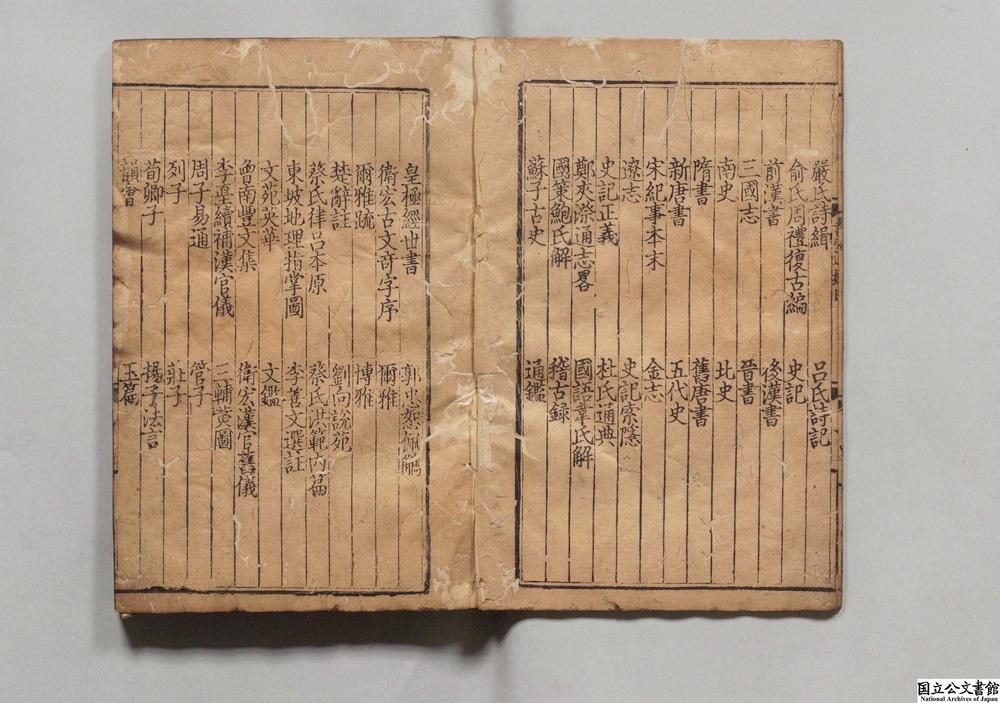 嚴氏詩緝 呂氏詩記
俞氏周禮復古編 史記
前漢書 後漢書
三國志 晉書
南史 北史
隋書 舊唐書
新唐書 五代史
宋紀事本末 金志
遼志 史記索隱
史記正義 杜氏通典
鄭夾漈通志畧 國語韋氏解
國策鮑氏解 稽古録
蘇子古史 通鑑
皇極經世書 郭忠恕佩觿
衛宏古文奇字序 爾雅
爾雅疏 博雅
楚辭註 劉向説苑
蔡氏律呂本原 蔡氏洪範内篇
東坡地理指掌圖 李善文選註
文苑英華 文鑑
曾南豐文集 衛宏漢官舊儀
李㙜續補漢官儀 三輔黄圖
周子易通 管子
列子 莊子
荀卿子 揚子法言
韻會 玉篇
国立公文書館
National Archives of Japan